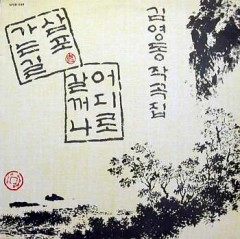 김영동 작곡집
삼포
가는 길
어디로
갈꺼나